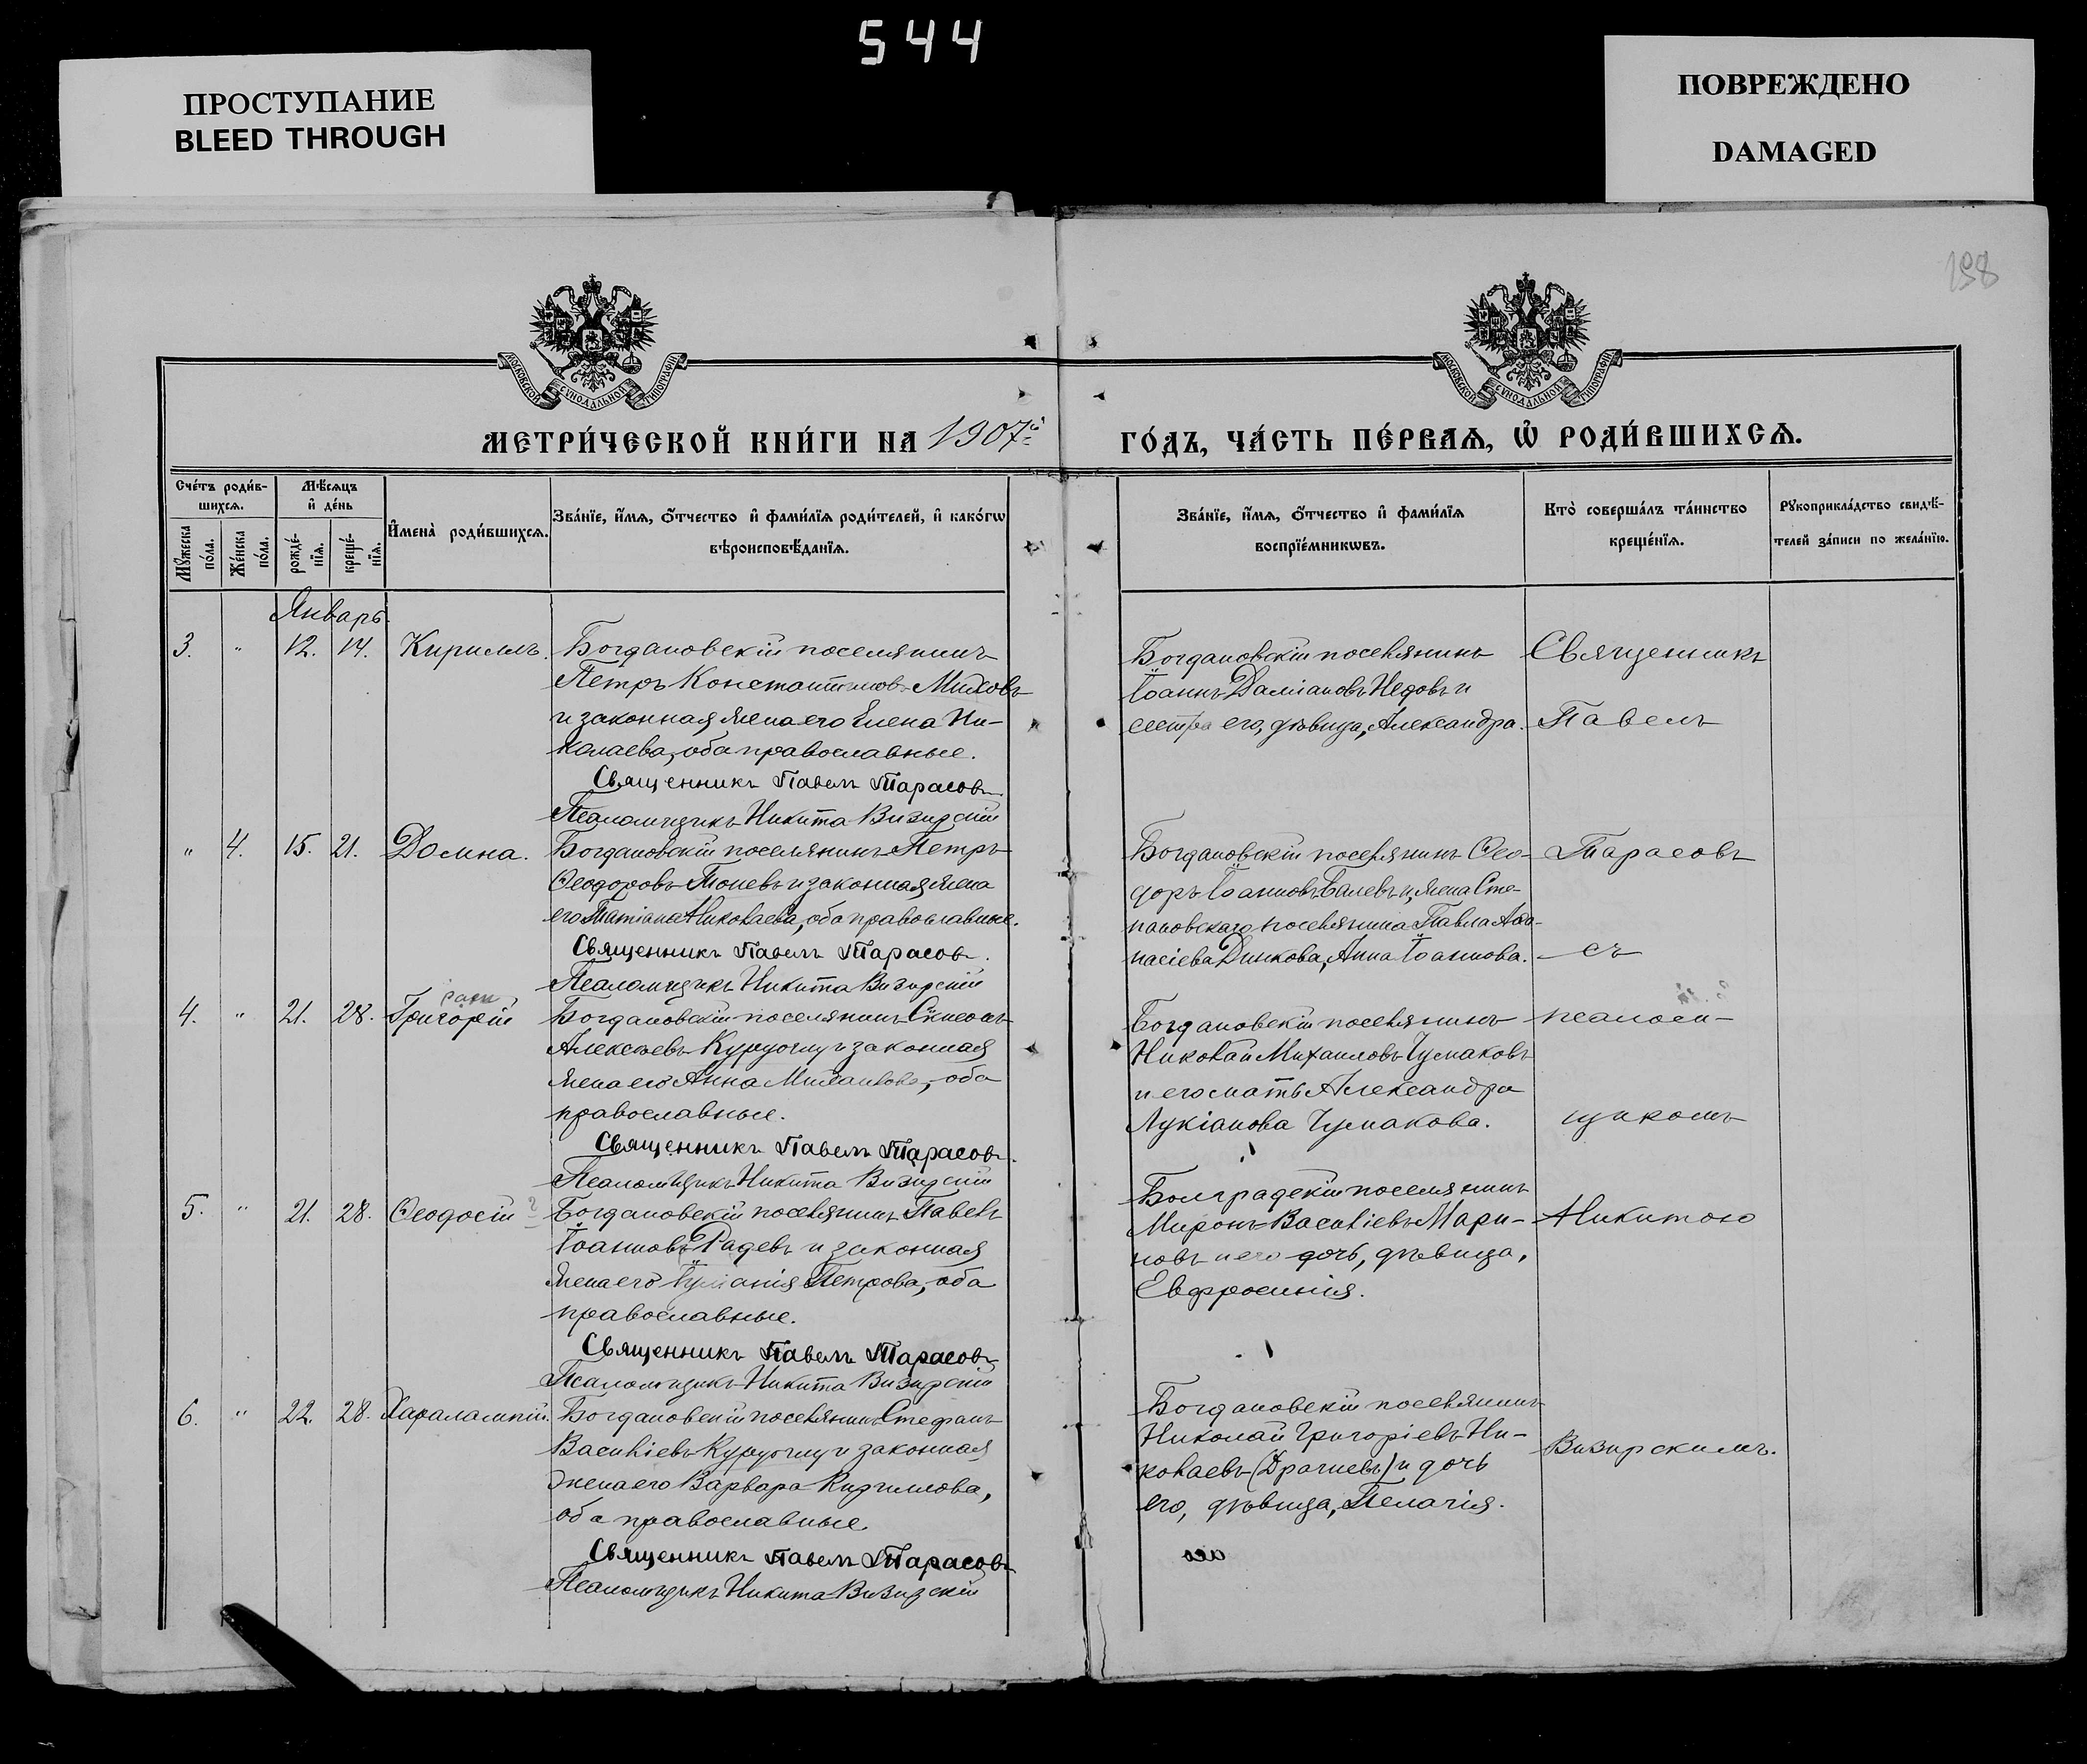 544
ПРОСТУПАНИЕ
BLEED THROUGH
ПОВРЕЖДЕНО
DAMAGED
198
МОСКОВСКОЙ СѴНОДАЛЬНОЙ ТИПОГРАФІИ
МОСКОВСКОЙ СѴНОДАЛЬНОЙ ТИПОГРАФІИ
МЕТРИ́ЧЕСКОЙ КНИ́ГИ НА 1907й
ГО́ДЪ, ЧА́СТЬ ПЕ́РВАѦ, Ѡ҆ РОДИ́ВШИХСѦ.
Сче́тъ роди́в-
шихсѧ.
Мѣ́сѧцъ
и҆ де́нь
Мꙋ́жеска по́ла.
Же́нска по́ла.
рожде́-нїѧ.
креще́-нїѧ.
И҆мена̀ роди́вшихсѧ.
Зва́нїе, и҆́мѧ, ѻ҆́тчество и҆ фами́лїѧ роди́телей, и҆ како́гѡ
вѣроисповѣ́данїѧ.
Зва́нїе, и҆́мѧ, ѻ҆́тчество и҆ фами́лїѧ
воспрїе́мникѡвъ.
Кто̀ соверша́лъ та́инство
креще́нїѧ.
Рꙋкоприкла́дство свидѣ́-
телей за́писи по жела́нїю.
Январь.
3. " 12. 14. Кириллъ.
Богдановскій поселянинъ
Петръ Константиновъ Миховъ
и законная жена его Елена Ни-
колаева, оба православные.
Священникъ Павелъ Тарасовъ.
Псаломщикъ Никита Визирскій
Богдановскій поселянинъ
Іоаннъ Даміановъ Недовъ и
сестра его, дѣвица, Александра.
Священникъ
Павелъ
" 4. 15. 21. Домна.
Богдановскій поселянинъ Петръ
Ѳеодоровъ Тоневъ и законная жена
его Татіана Николаева, оба православные.
Священникъ Павелъ Тарасовъ.
Псаломщикъ Никита Визирскій
Богдановскій поселянинъ Ѳео-
доръ Іоанновъ Балевъ и, жена Сте-
пановскаго поселянина Павла Аѳа-
насіева Динкова, Анна Іоаннова.
Тарасовъ
съ
4. " 21. 28. Григорій
Богдановскій поселянинъ Симеонъ
Алексѣевъ Куруоглу и законная
жена его Анна Михаилова, оба
православные.
Священникъ Павелъ Тарасовъ.
Псаломщикъ Никита Визирскій
Богдановскій поселянинъ
Николай Михаиловъ Чумаковъ
и его мать Александра
Лукіанова Чумакова.
псалом-
щикомъ
5. " 21. 28. Ѳеодосій
Богдановскій поселянинъ Павелъ
Іоанновъ Радевъ и законная
жена его Іуліанія Петрова, оба
православные.
Священникъ Павелъ Тарасовъ
Псаломщикъ Никита Визирскій
Болградскій поселянинъ
Миронъ Василіевъ Мари-
новъ и его дочь, дѣвица,
Евфросинія.
Никитою
6. " 22. 28. Харалампій.
Богдановскій поселянинъ Стефанъ
Василіевъ Куруоглу и законная
жена его Варвара Кириллова,
оба православные.
Священникъ Павелъ Тарасовъ
Псаломщикъ Никита Визирскій
Богдановскій поселянинъ
Николай Григоріевъ Ни-
колаевъ (Драгневъ) и дочь
его, дѣвица, Пелагія.
Визирскимъ.